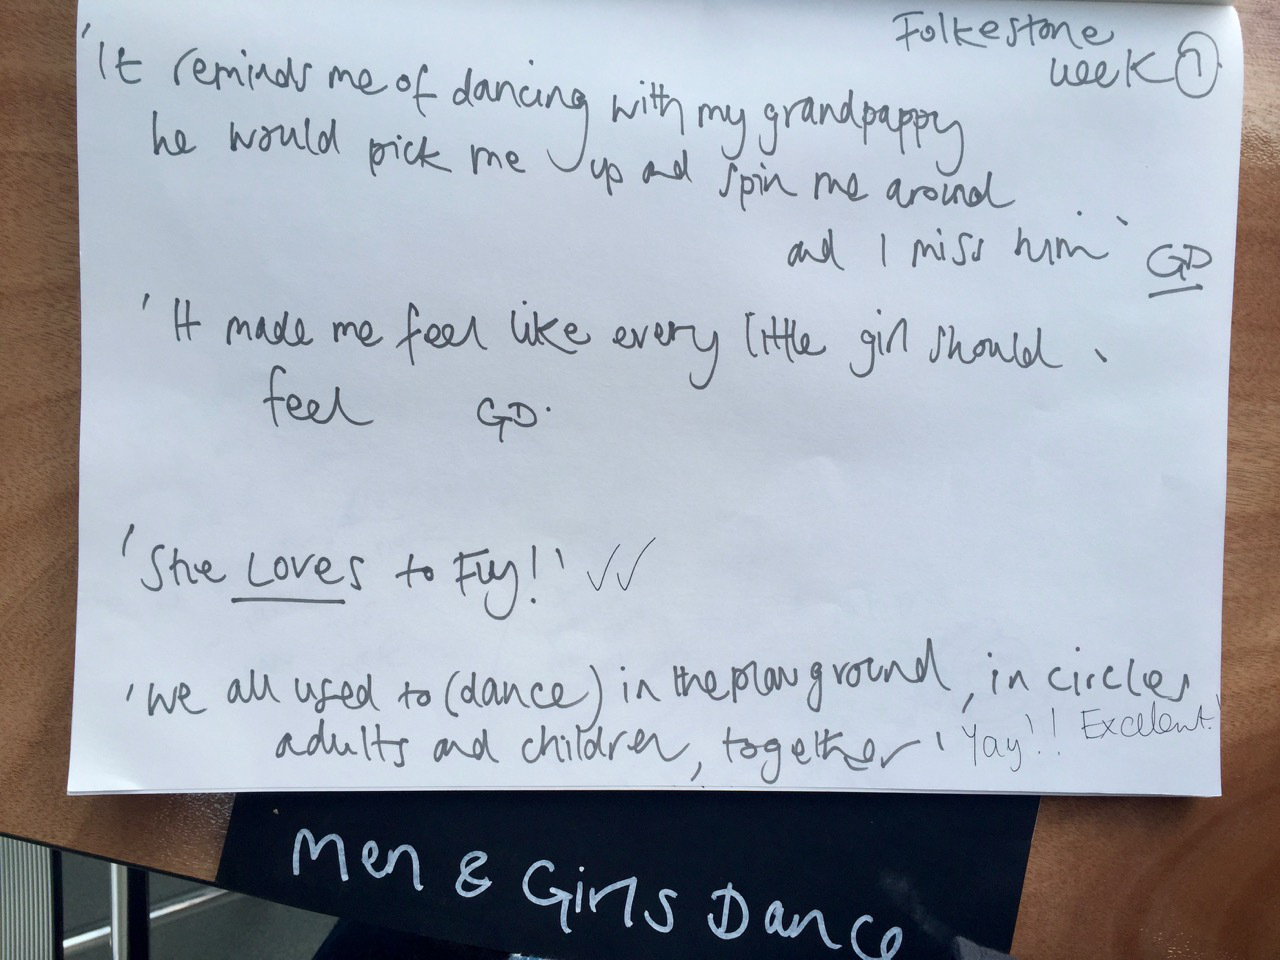 Folkestone
week 1
'It reminds me of dancing with my grandpappy
he would pick me up and spin me around
and I miss him.'
GD
'It made me feel like every little girl should
feel' GD.
'She LOVES to Fly!!' ✓✓
'We all used to (dance) in the playground, in circles
adults and children, together' Yay!! Excellent!
Men & Girls Dance